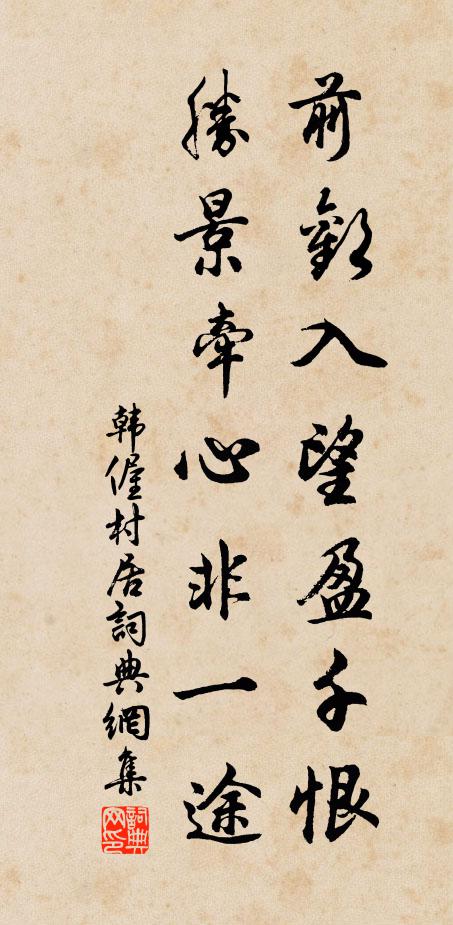 前歡入望盈千恨
勝景牽心非一途
韩偓村居詞典網集
詞典網印